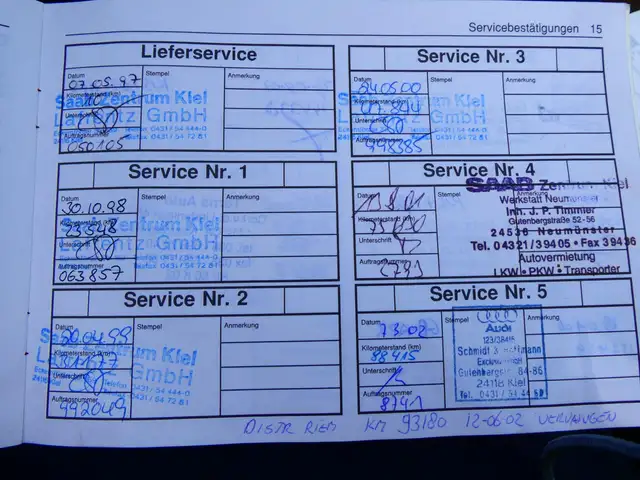 Servicebestätigungen 15
Lieferservice
Datum Stempel Anmerkung
07.05.97
Kilometerstand (km)
Saab Zentrum Kiel
Lafrentz GmbH
Unterschrift
Telefon 0431/54 444-0
Telefax 0431/54 72 81
Auftragsnummer
050105
Service Nr. 1
Datum Stempel Anmerkung
30.10.98
Kilometerstand (km)
Saab Zentrum Kiel
Lafrentz GmbH
Unterschrift
Telefon 0431/54 444-0
Telefax 0431/54 72 81
Auftragsnummer
063857
Service Nr. 2
Datum Stempel Anmerkung
20.04.99
Saab Zentrum Kiel
Kilometerstand (km)
Lafrentz GmbH
Unterschrift
Telefon 0431/54 444-0
Telefax 0431/54 72 81
Auftragsnummer
992049
Service Nr. 3
Datum Stempel Anmerkung
240500
Saab Zentrum Kiel
Kilometerstand (km)
Lafrentz GmbH
Unterschrift
Telefon 0431/54 444-0
Telefax 0431/54 72 81
Auftragsnummer
998385
Service Nr. 4
SAAB Zentrum Kiel
Datum
Werkstatt Neumünster
Inh. J. P. Timmler
Kilometerstand (km)
Gutenbergstraße 52-56
24536 Neumünster
Unterschrift
Tel. 04321/39405 • Fax 39436
Autovermietung
Auftragsnummer
LKW • PKW • Transporter
Service Nr. 5
Datum Stempel Anmerkung
Audi
123/38415
Kilometerstand (km)
88415
Unterschrift
Gutenbergstr. 84-86
24118 Kiel
Auftragsnummer
8741
DISTR RIEM KM 93180 12-06-02 VERVANGEN